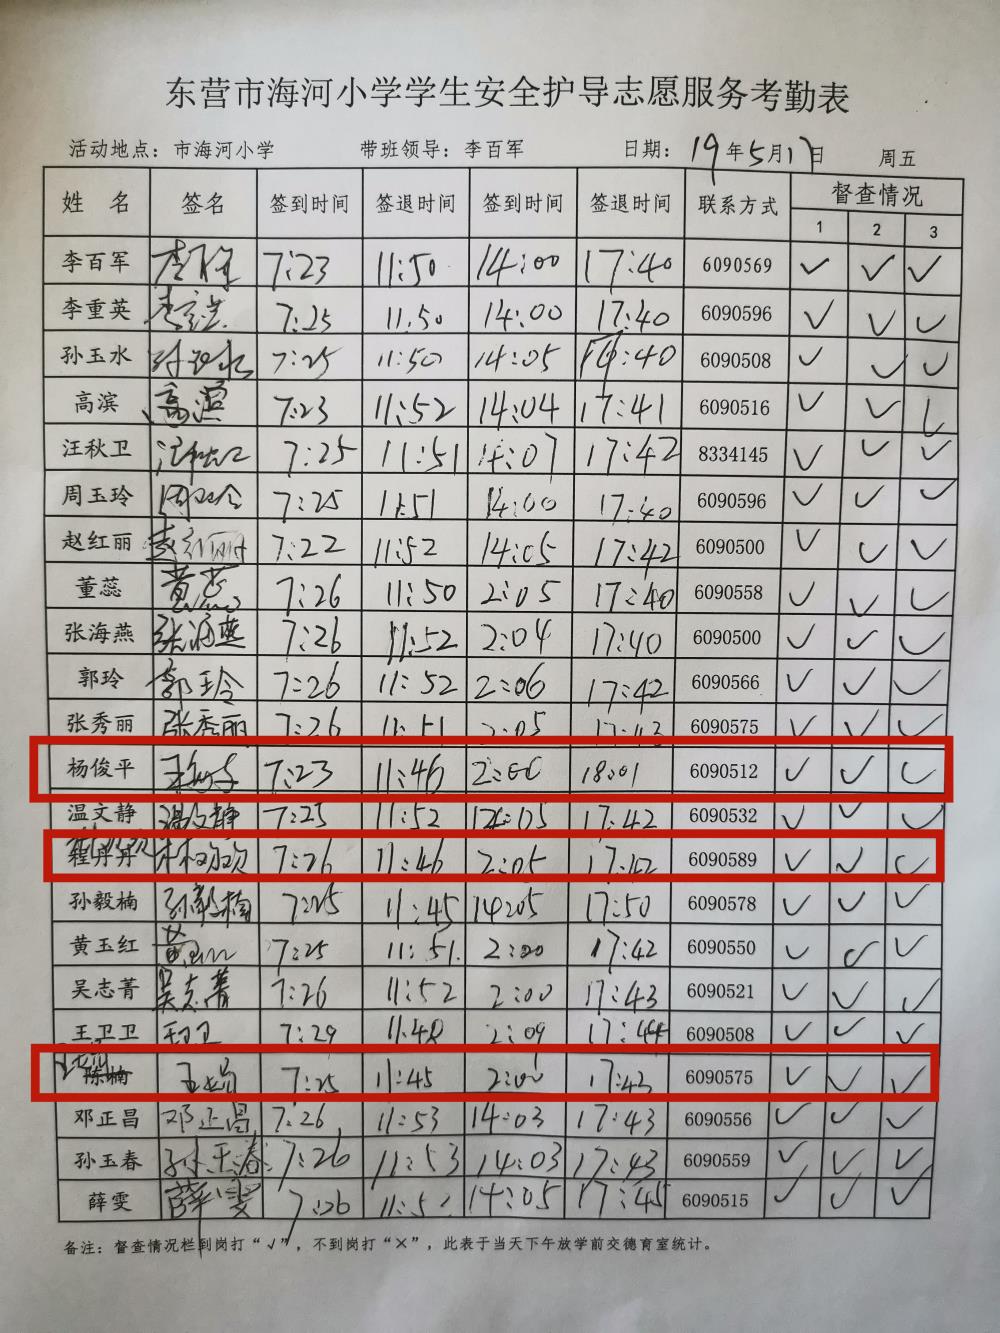 东营市海河小学学生安全护导志愿服务考勤表
活动地点：市海河小学 带班领导：李百军 日期：19年5月17日 周五
姓 名 签名 签到时间 签退时间 签到时间 签退时间 联系方式 督查情况
1 2 3
李百军 7:23 11:50 14:00 17:40 6090569 ✓ ✓ ✓
李重英 7:25 11.50 14:00 17:40 6090596 ✓ ✓ ✓
孙玉水 孙玉水 7:25 11:50 14:05 17:40 6090508 ✓ ✓ ✓
高滨 高滨 7:23 11:52 14:04 17:41 6090516 ✓ ✓ ✓
汪秋卫 汪秋卫 7:25 11:51 14:07 17:42 8334145 ✓ ✓ ✓
周玉玲 周玉玲 7:25 11:51 14:00 17:40 6090596 ✓ ✓ ✓
赵红丽 赵红丽 7:22 11:52 14:05 17:42 6090500 ✓ ✓ ✓
董蕊 7:26 11:50 2:05 17:40 6090558 ✓ ✓ ✓
张海燕 张海燕 7:26 11:52 2:04 17:40 6090500 ✓ ✓ ✓
郭玲 郭玲 7:26 11:52 2:06 17:42 6090566 ✓ ✓ ✓
张秀丽 张秀丽 7:26 11:51 2:05 17:43 6090575 ✓ ✓ ✓
杨俊平 7:23 11:46 2:00 18:01 6090512 ✓ ✓ ✓
温文静 温文静 7:25 11:52 14:05 17:42 6090532 ✓ ✓ ✓
程丹丹 7:26 11:46 2:05 17:42 6090589 ✓ ✓ ✓
孙毅楠 孙毅楠 7:25 11:45 14:05 17:50 6090578 ✓ ✓ ✓
黄玉红 7:25 11:51. 2:00 17:42 6090550 ✓ ✓ ✓
吴志菁 吴志菁 7:26 11:52 2:00 17:43 6090521 ✓ ✓ ✓
王卫卫 7:29 11:48 2:09 17:44 6090508 ✓ ✓ ✓
陈楠 7:25 11:45 2:00 17:43 6090575 ✓ ✓ ✓
邓正昌 邓正昌 7:26 11:53 14:03 17:43 6090556 ✓ ✓ ✓
孙玉春 孙玉春 7:26 11:53 14:03 17:43 6090559 ✓ ✓ ✓
薛雯 薛雯 7:26 14:05 17:45 6090515 ✓ ✓ ✓
备注：督查情况栏到岗打“√”，不到岗打“×”，此表于当天下午放学前交德育室统计。